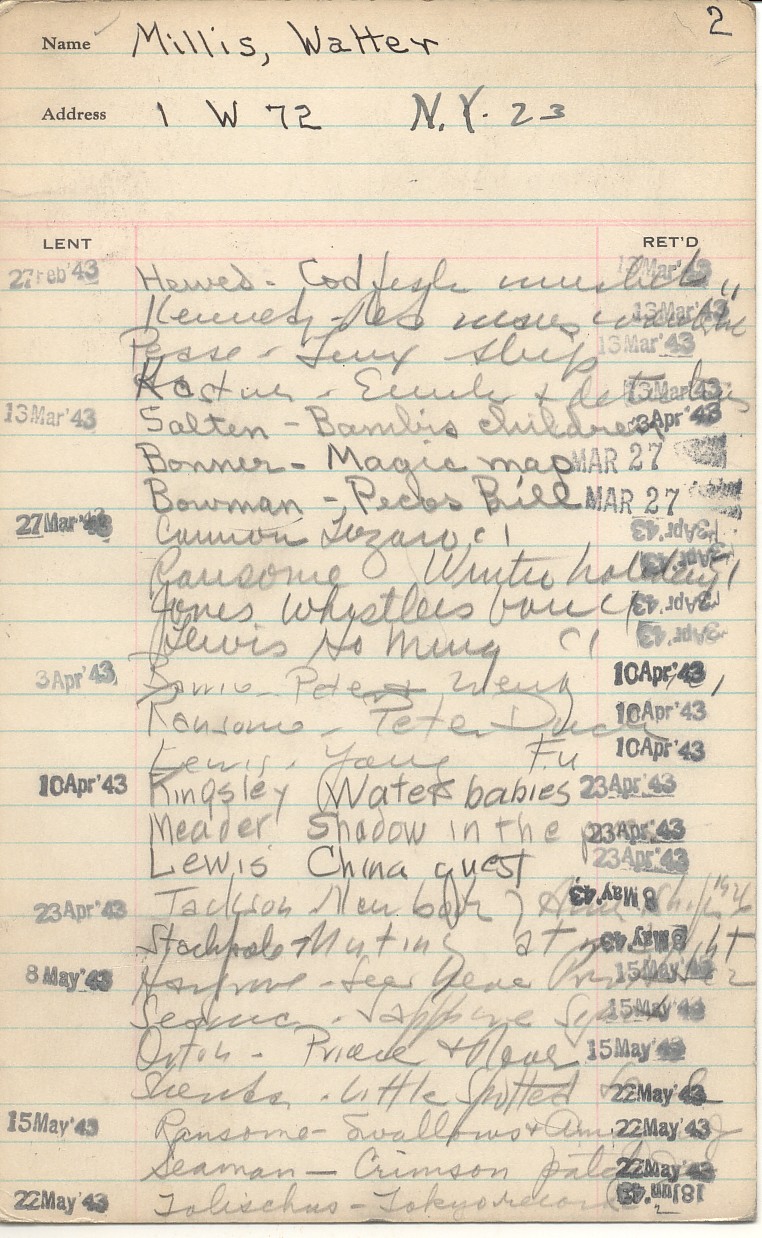 2
Name Millis, Walter
Address 1 W 72 N.Y. 23
LENT RET'D
27 Feb '43 Hewes - Codfish 13 Mar '43
Kennedy - Red 13 Mar '43
Pease - ship 13 Mar '43
Kastner - Emil & detectives 13 Mar '43
13 Mar '43 Salten - Bambis children 3 Apr '43
Bonner - Magic map MAR 27
Bowman - Pecos Bill MAR 27
27 Mar '43 Cannon Lazaro c1 3 Apr '43
Ransome Winter holiday 3 Apr '43
Jones Whistlers van c1 3 Apr '43
Lewis Ho Ming c1 3 Apr '43
3 Apr '43 Barrie - Peter & Wendy 10 Apr '43
Ransome - Peter Duck 10 Apr '43
Lewis - Young Fu 10 Apr '43
10 Apr '43 Kingsley Water babies 23 Apr '43
Meader Shadow in the 23 Apr '43
Lewis China quest 23 Apr '43
23 Apr '43 Jackson New book 8 May '43
Stackpole - Mutiny at night 8 May '43
8 May '43 Hargrove - See Here Private 15 May '43
15 May '43
Orton - 15 May '43
Little Spotted 22 May '43
15 May '43 Ransome - Swallows & 22 May '43
Seaman - Crimson patch 22 May '43
22 May '43 Tolischus - Tokyo record 18 Jun '43